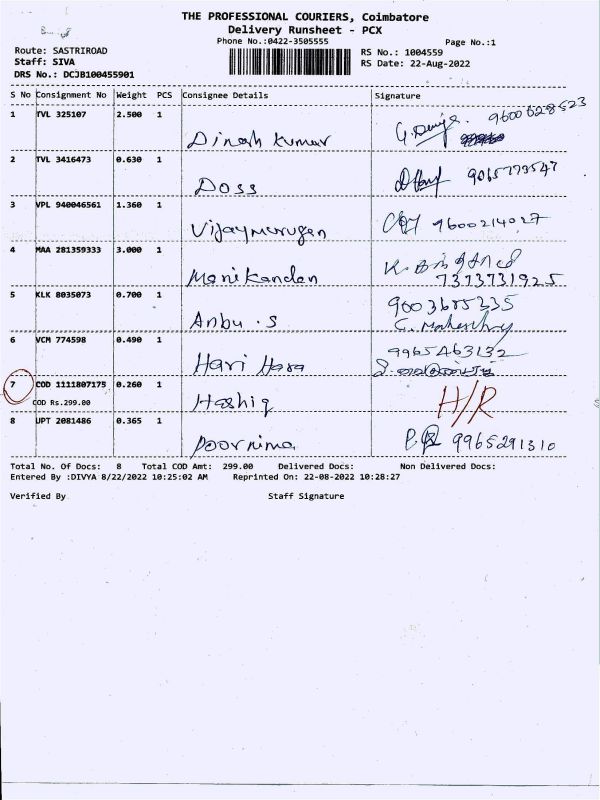 THE PROFESSIONAL COURIERS, Coimbatore
Delivery Runsheet - PCX
Phone No.:0422-3505555
Page No.:1
Route: SASTRIROAD
RS No.: 1004559
Staff: SIVA
RS Date: 22-Aug-2022
DRS No.: DCJB100455901
S No Consignment No Weight PCS Consignee Details Signature
1 TVL 325107 2.500 1 Dinesh Kumar 9600628523
2 TVL 3416473 0.630 1 Doss 9065773547
3 VPL 940046561 1.360 1 Vijaymurugan 9600214027
4 MAA 281359333 3.000 1 Manikandan 7373731925
5 KLK 8035073 0.700 1 Anbu .S 9003685335
G. Maheshwary
6 VCM 774598 0.490 1 Hari Hara 9965463132
7 COD 1111807175 0.260 1 Hashiq H/R
COD Rs.299.00
8 UPT 2081486 0.365 1 Poornima 9965291310
Total No. Of Docs: 8 Total COD Amt: 299.00 Delivered Docs: Non Delivered Docs:
Entered By :DIVYA 8/22/2022 10:25:02 AM Reprinted On: 22-08-2022 10:28:27
Verified By Staff Signature